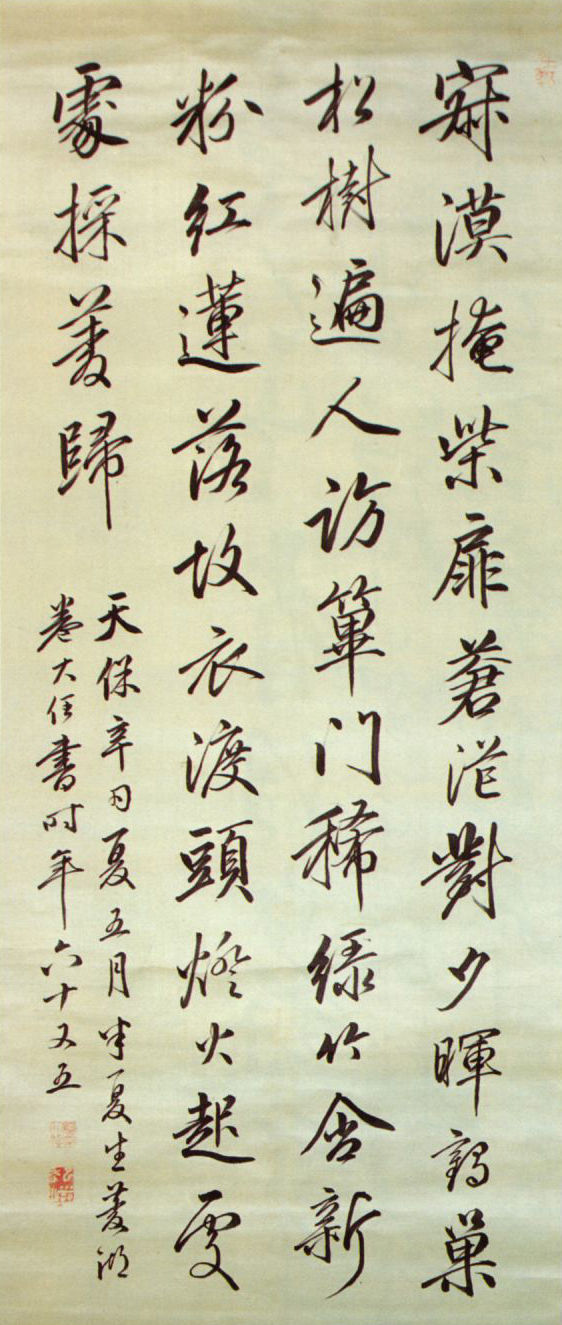 寂漠掩柴扉蒼茫對夕暉鶴巢
松樹遍人訪篳門稀綠竹含新
粉紅蓮落故衣渡頭燈火起處
處採菱歸
天保辛丑夏五月半夏生菱湖
卷大任書時年六十又五